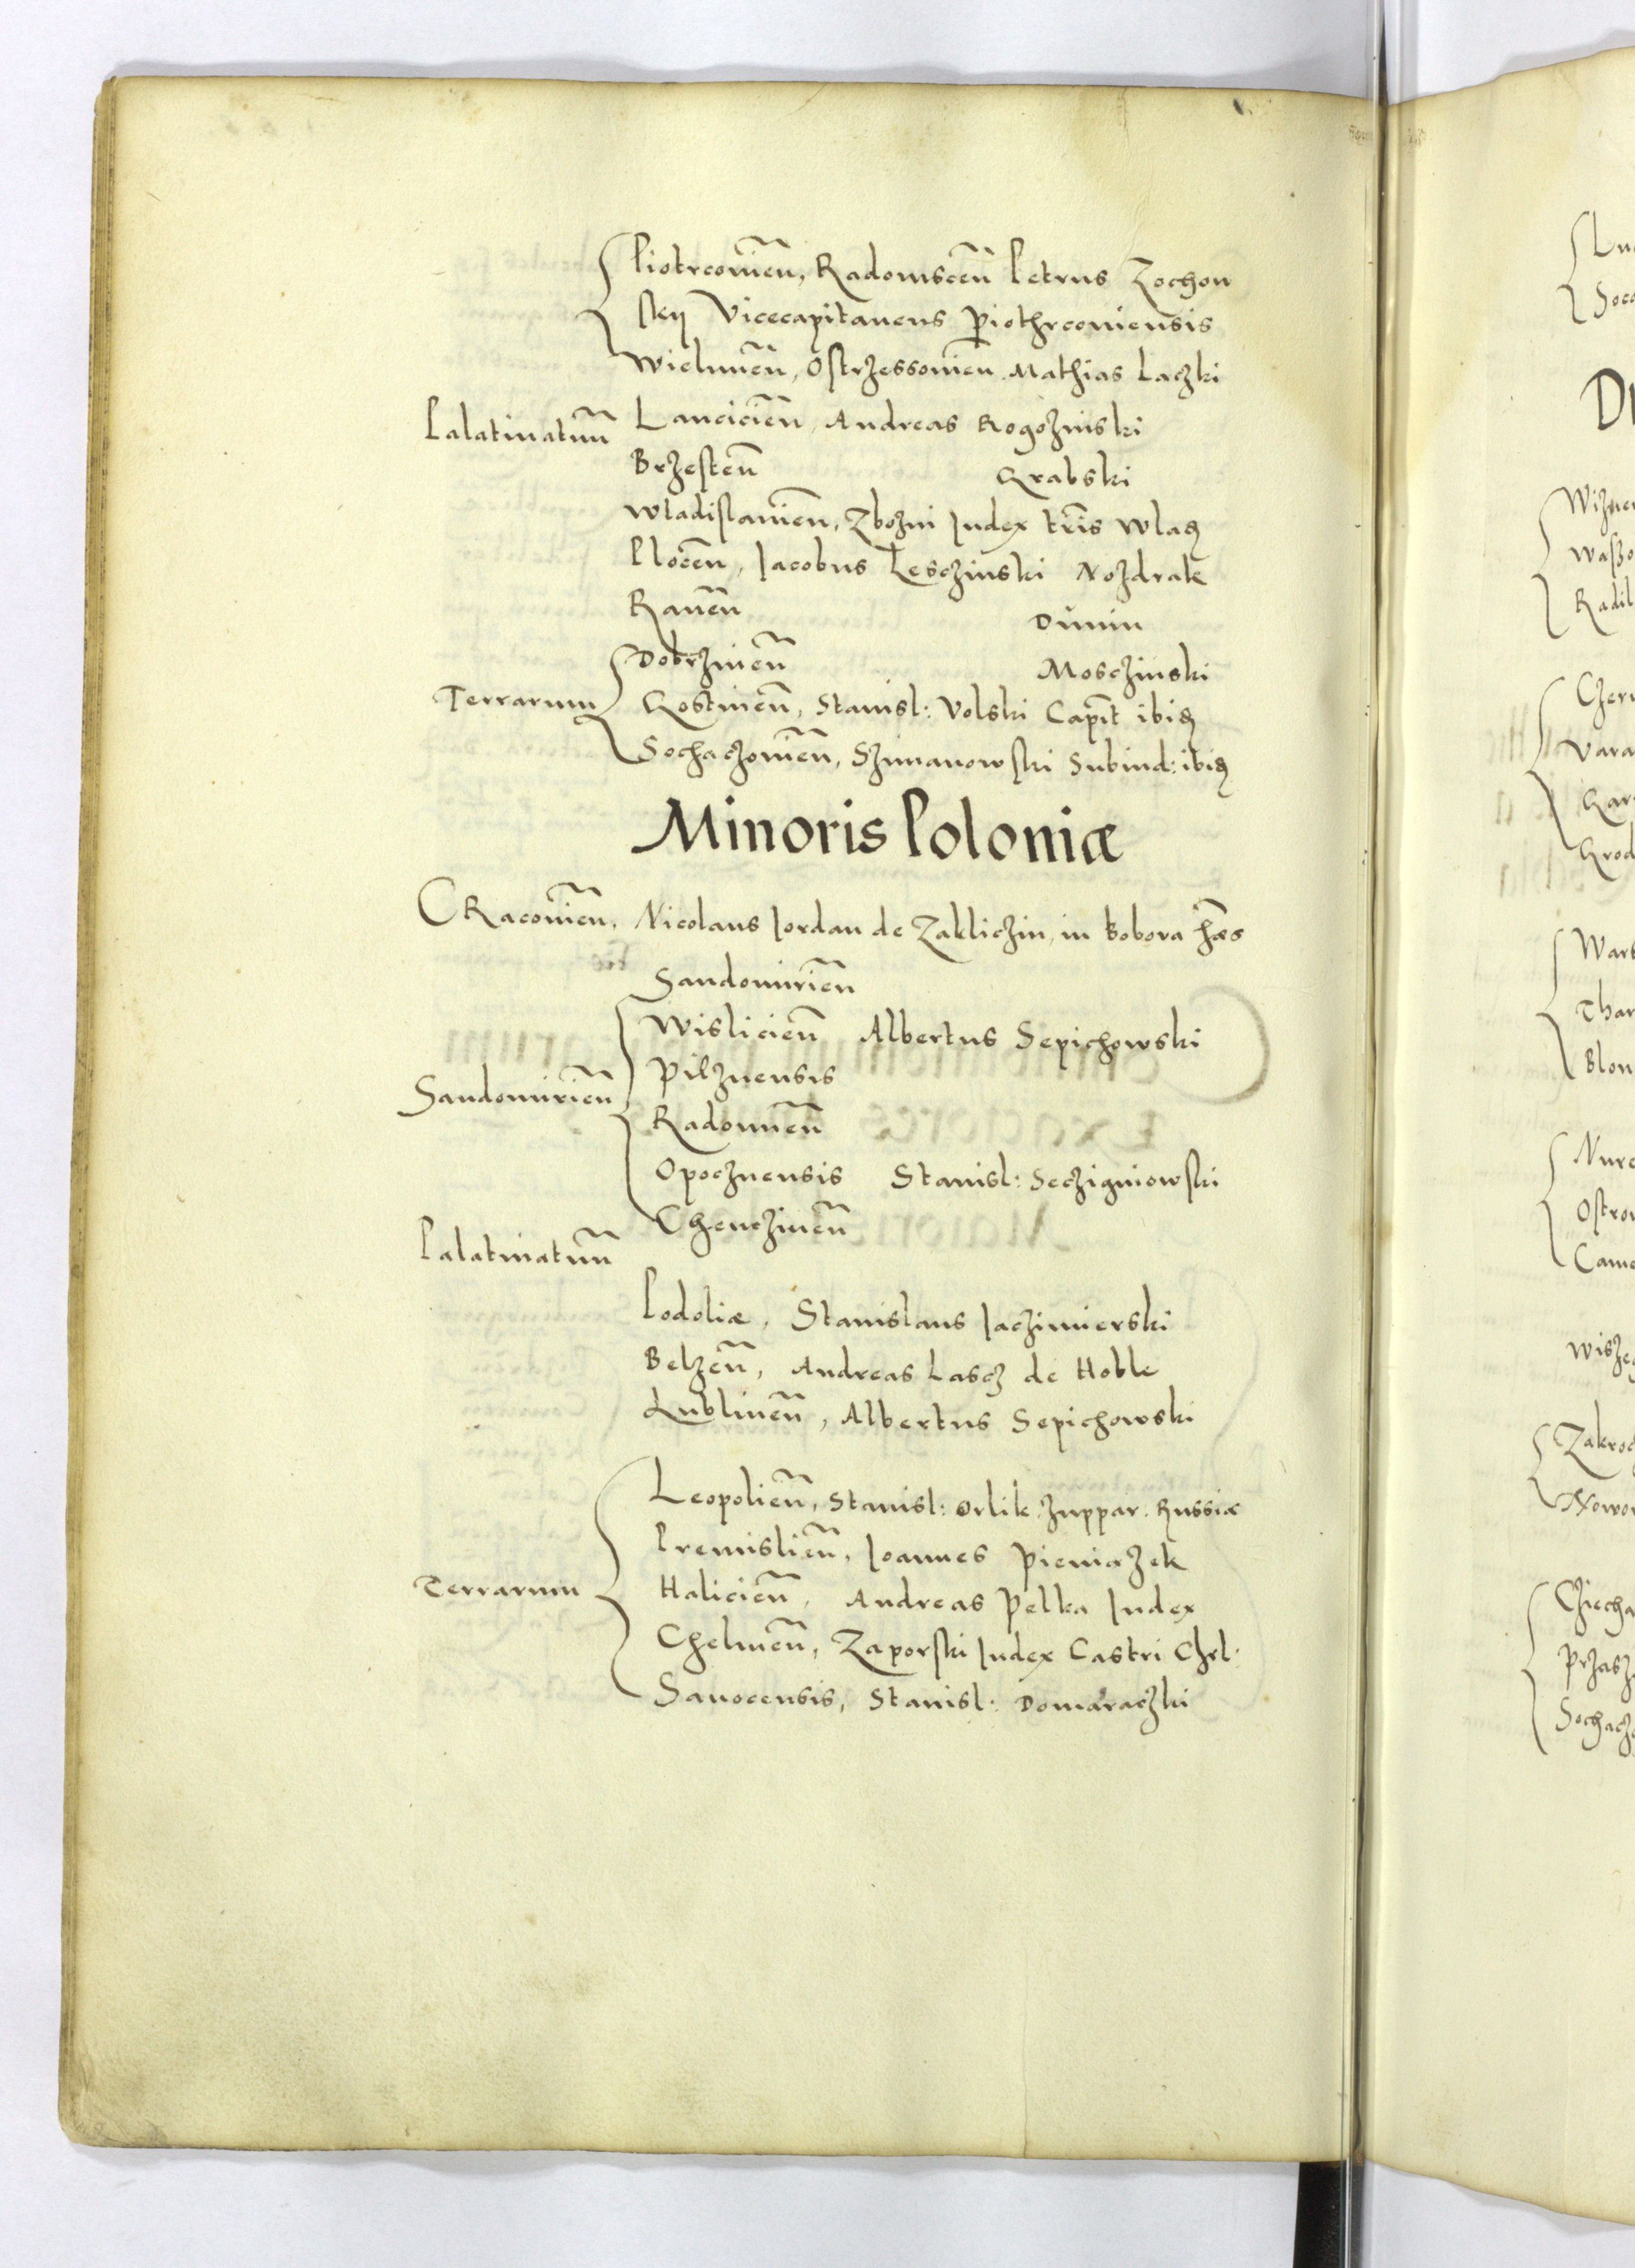 Piotrconień, Radomsceń Petrus Zochow
skij Vicecapitaneus Piothrconiensis
Wielunēn, Ostrzessonień Mathias Laczki
Palatinatuū Lancicień, Andreas Rogozinski
Brzestēn Grabski
Wladislauień, Zbozni Iudex trīs Wlaꝫ
Plocēn, Iacobus Lesczinski Nozdrak
Rauēn Dunin
Dobrzinēn Mosczinski
Terrarum Gostinēn, Stanisl: Volski Capīt ibiꝫ
Sochaczouiēn, Szimanowski Subiud: ibiꝫ
Minoris Poloniæ
CRacouiēn, Nicolaus Iordan de Zakliczin, in Kobora hǣs
Sandomiriēn
Wisliciēn Albertus Sepichowski
Pilznensis
Sandomiriēn
Radomiēn
Opocznensis Stanisl: Secziguiowski
Chenczinēn
Palatinatuū
Podoliæ, Stanislaus Iaczimierski
Belzēn, Andreas Lascz de Hoble
Lublinēn, Albertus Sepichowski
Leopoliēn, Stanisl: Orlik zuppar. Russiæ
Premisliēn, Ioannes Pieniazek
Terrarum Haliciēn, Andreas Pelka Iudex
Chelmēn, Zaporski Iudex Castri Chel:
Sanocensis, Stanisl: Domaraczki
Soca
Wizne
Waszo
Radil
Czer
Vara
Gar
Grod
Wark
Thar
Blon
Nure
Ostro
Came
Wisze
Zakroc
Nowo
Cziecha
Przasz
Sochacz